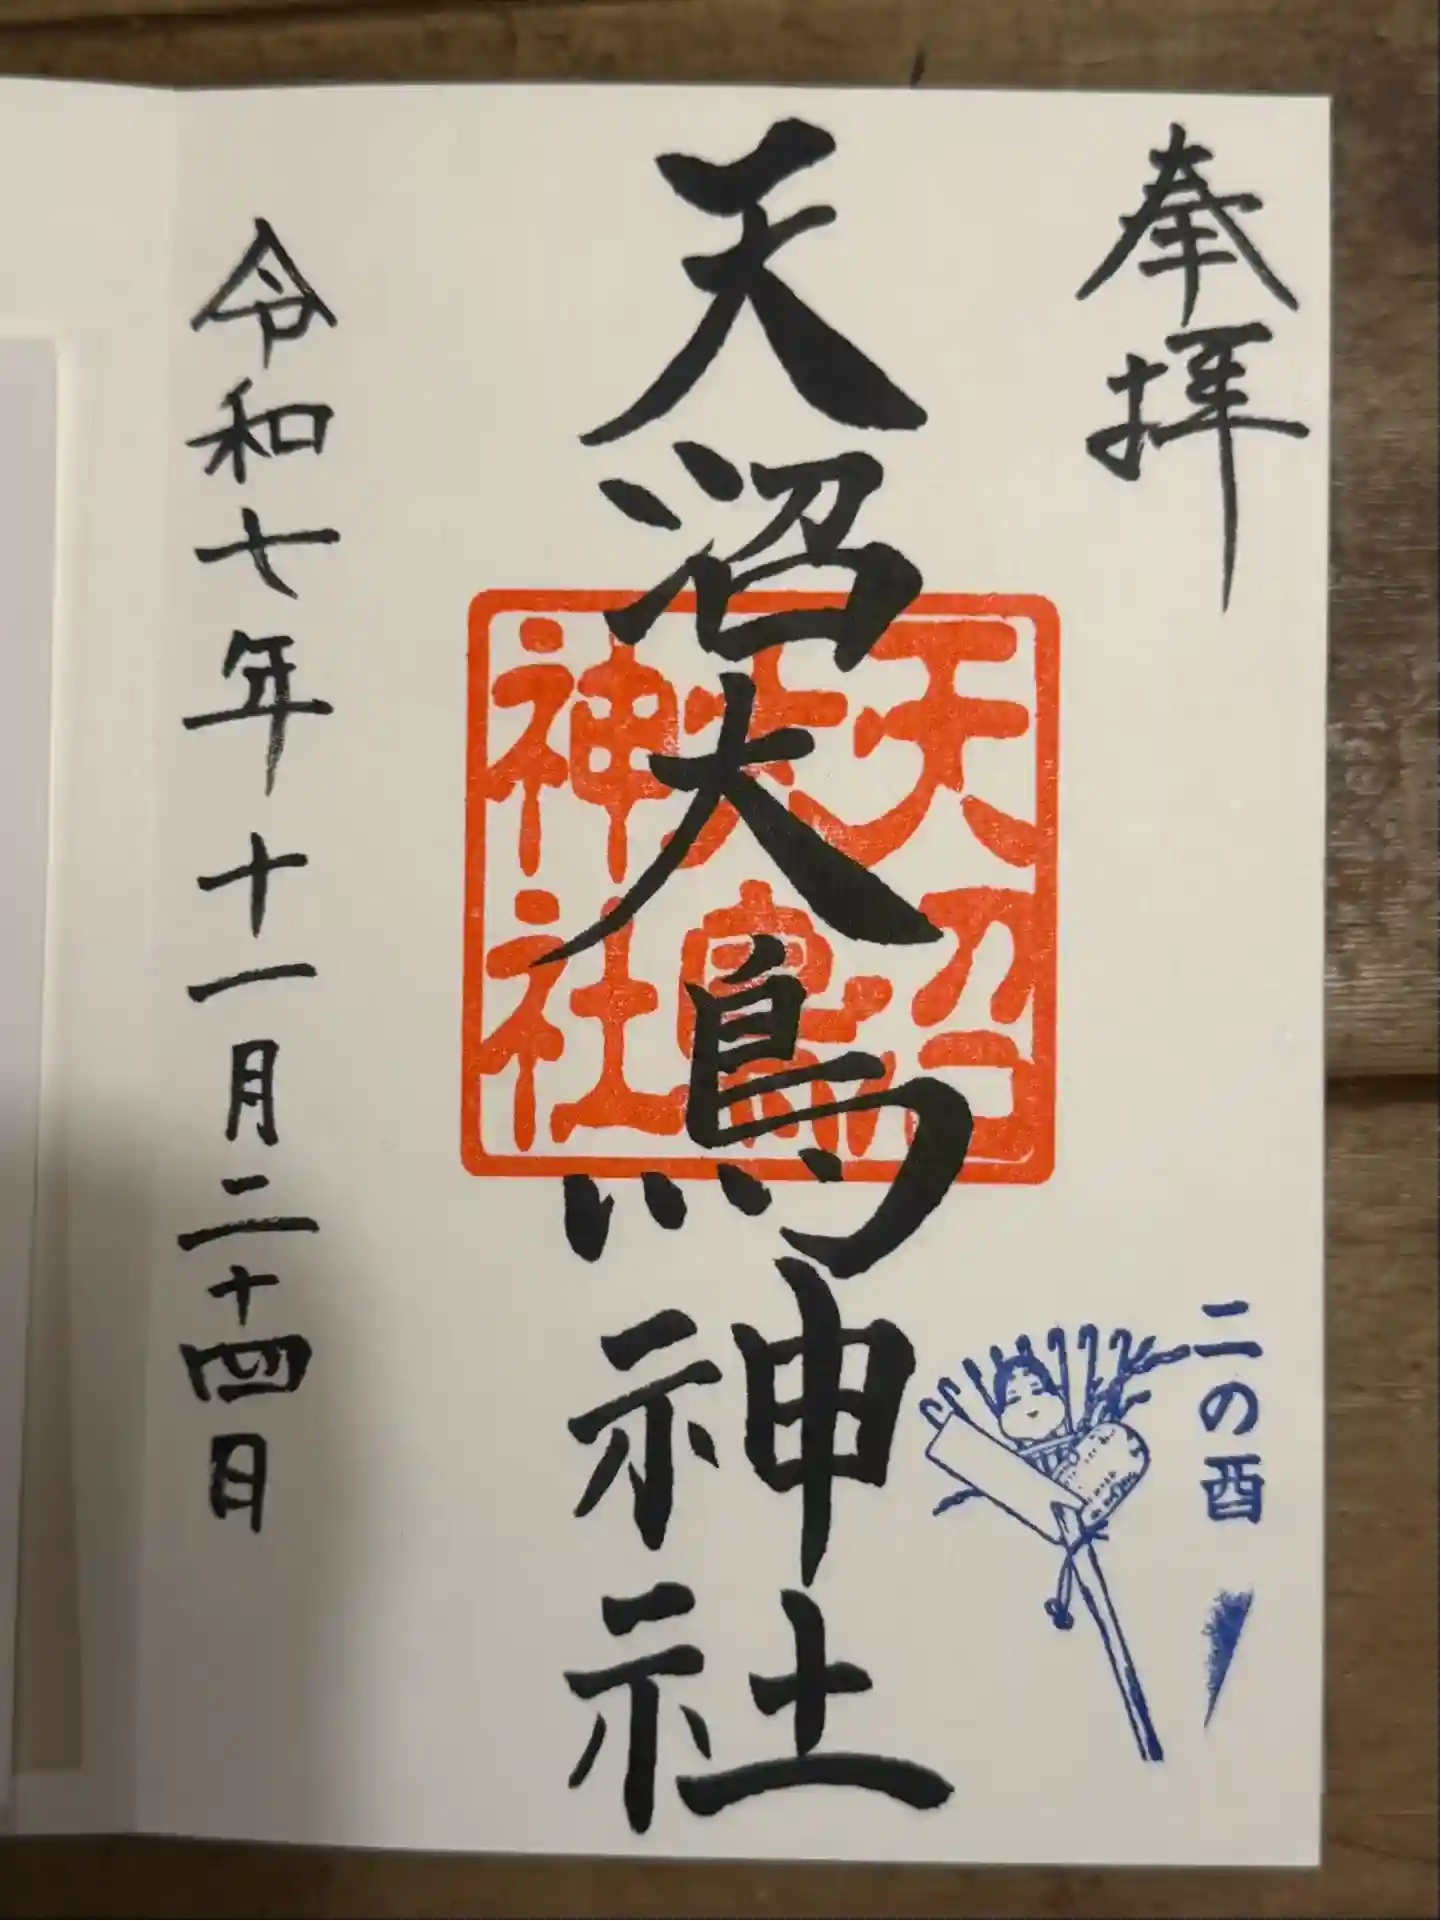 奉拝
二の酉
天沼大鳥神社
天沼
大鳥
神社
令和七年十一月二十四日